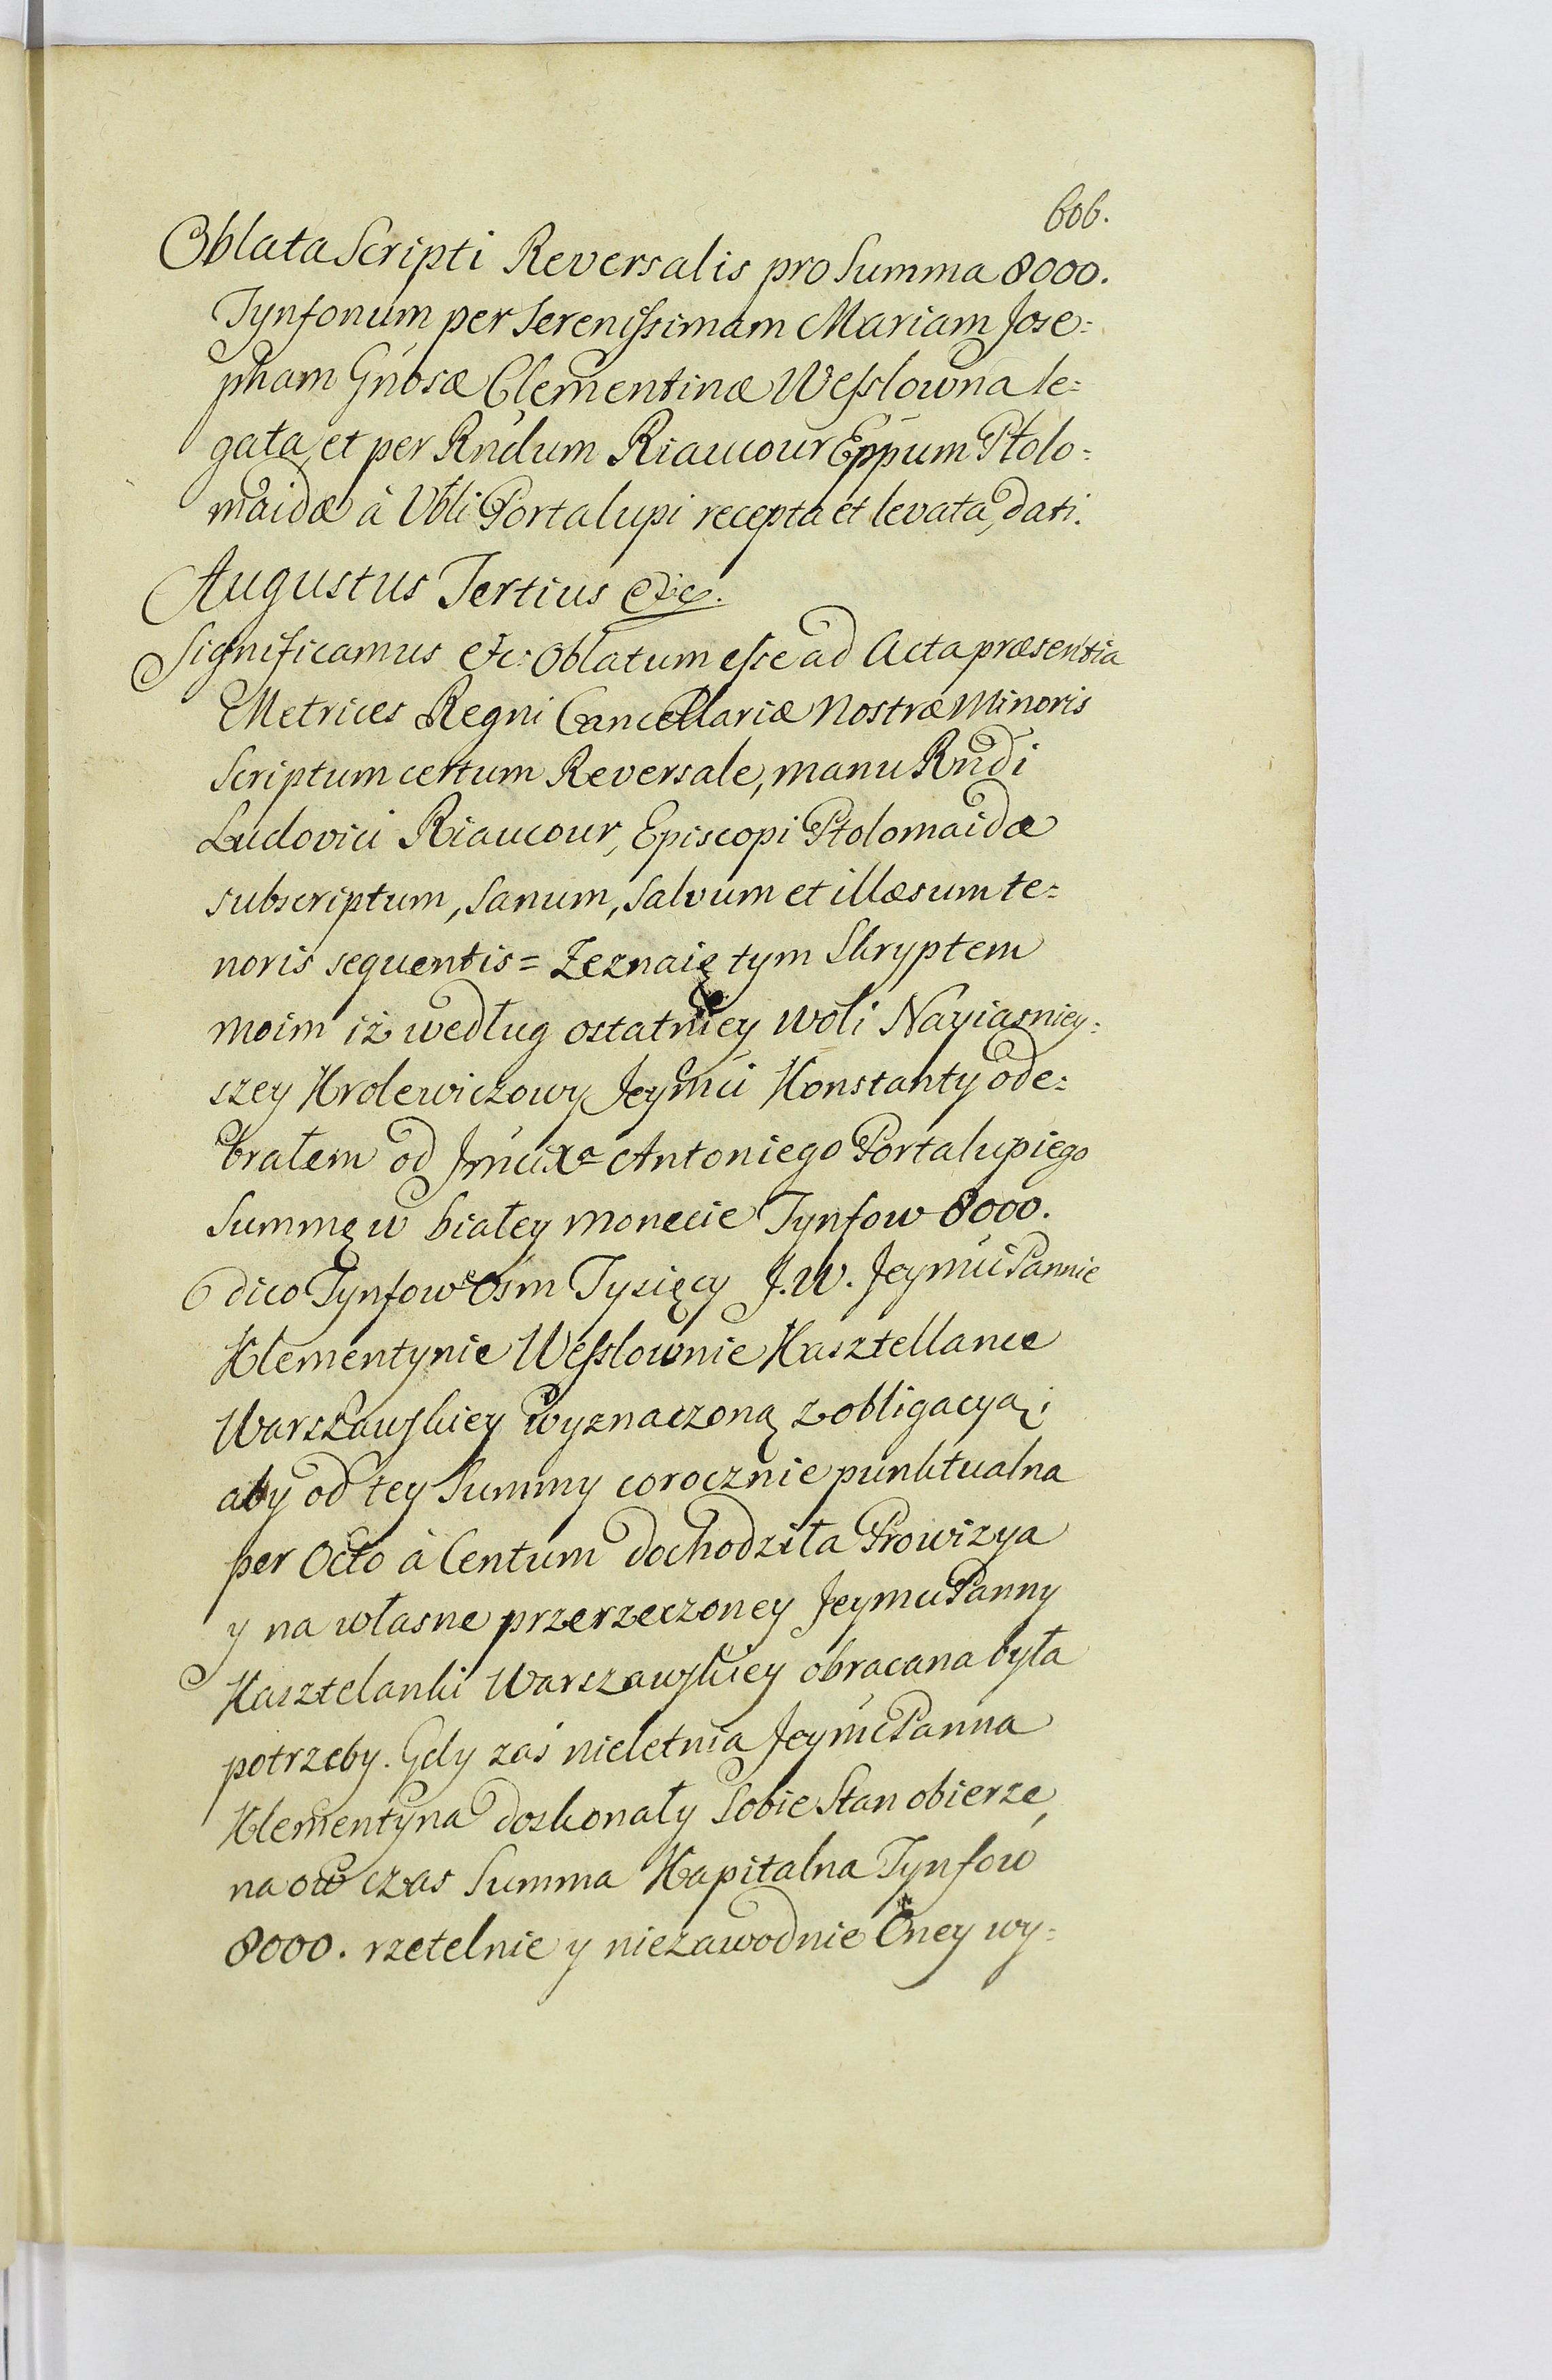 606.
Oblata Scripti Reversalis pro Summa 8000.
Tynfonum per Serenissimam Mariam Jose=
pham Gnosæ Clementinæ Wesslowna le=
gata, et per Rndum Riaucour Eppum Ptolo=
maidæ à Vbli Portalupi recepta et levata, dati.
Augustus Tertius &c.
Significamus &c: Oblatum esse ad Acta præsentia
Metrices Regni Cancellariæ Nostræ Minoris
Scriptum certum Reversale, manu Rndi
Ludovici Riaucour, Episcopi Ptolomaidæ
subscriptum, sanum, salvum et illæsum te=
noris sequentis = Zeznaię tym Skryptem
moim iż według ostatniey woli Nayiasniey=
szey Krolewiczowy Jeymći Konstanty ode=
brałem od Jmći Xa Antoniego Portalupiego
Summę w białey monecie Tynfow 8000.
dico Tynfow Osm Tysięcy J.W. Jeymći Pannie
Klementynie Wesslownie Kasztellance
Warszawskiey wyznaczoną z obligacyą;
aby od tey Summy corocznie punktualna
per Octo à Centum dochodziła Prowizya
y na własne przerzeczoney Jeymci Panny
Kasztelanki Warszawskiey obracana była
potrzeby. Gdy zaś nieletnia Jeymć Panna
Klementyna doskonały sobie Stan obierze,
na ow czas Summa Kapitalna Tynfow
8000. rzetelnie y niezawodnie Oney wy=